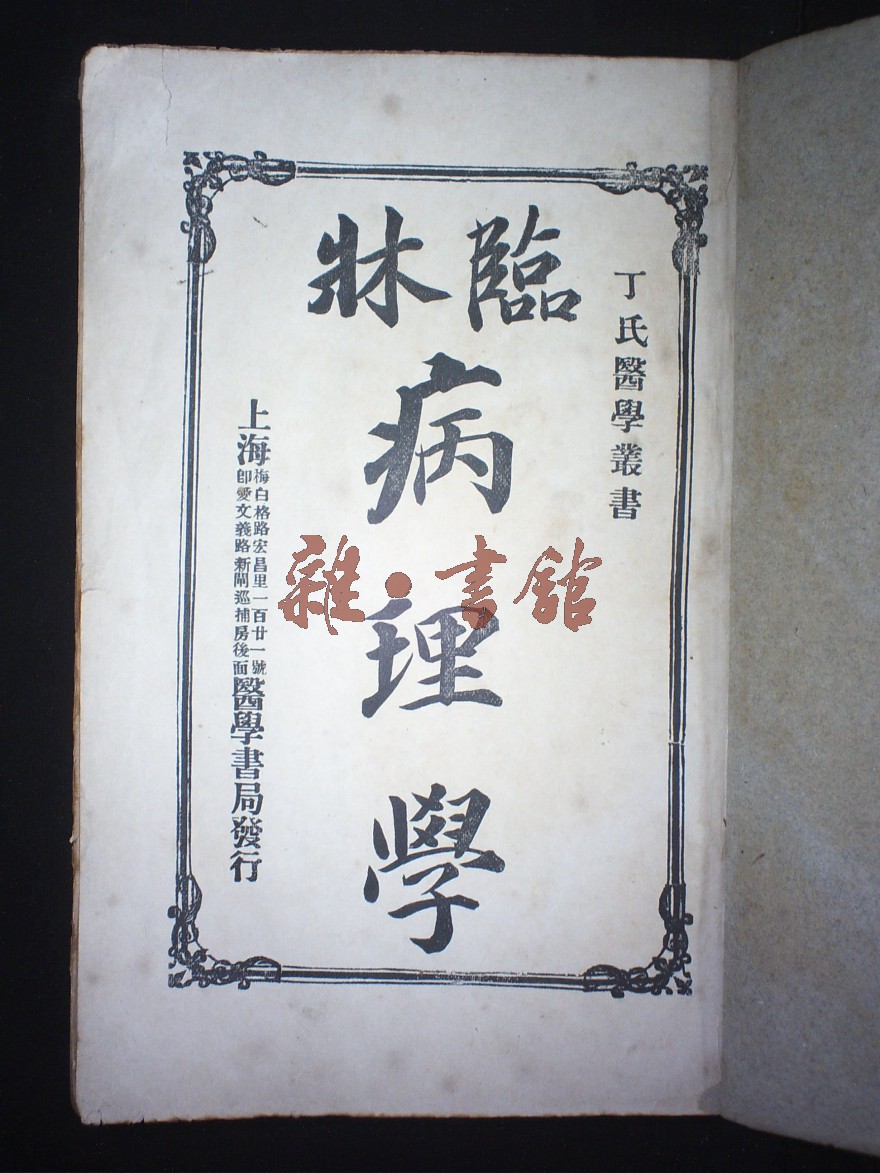 丁氏醫學叢書
臨牀
病
理
學
上海
梅白格路宏昌里一百廿一號
即愛文義路新閘巡捕房後面
醫學書局發行
雜·書館